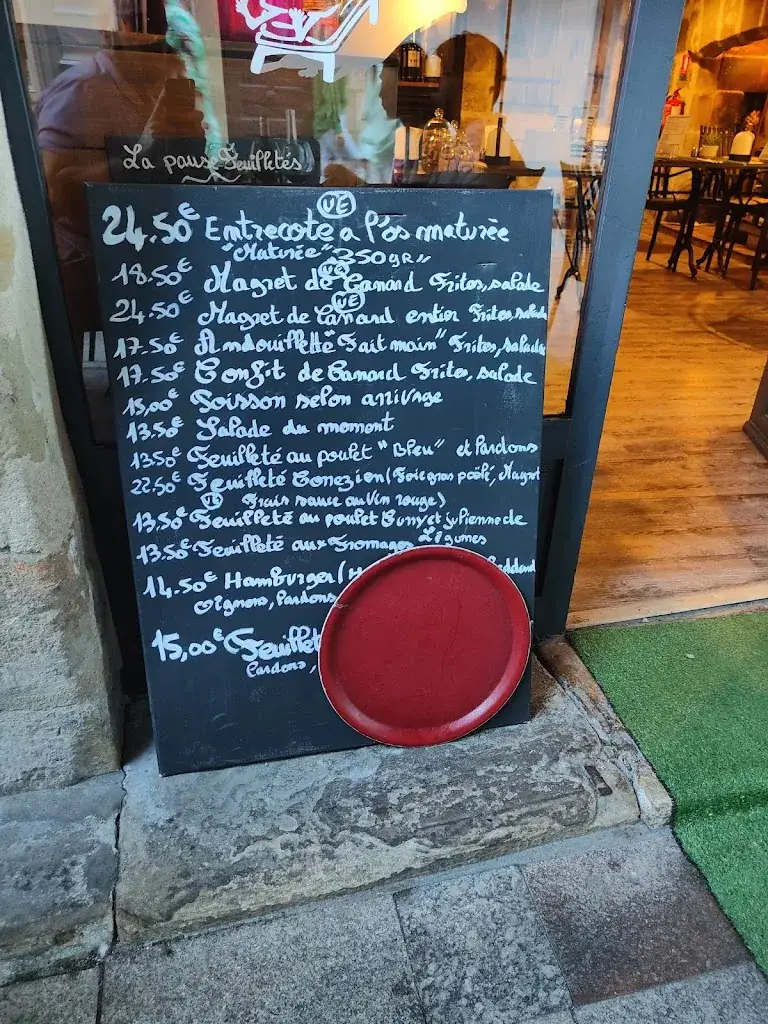 La pause Feuilletés
UE
24.50€ Entrecote a l'os maturée
"Maturée" 350gr"
18.50€ Magret de Canard Frites, salade
UE
24.50€ Magret de Canard entier Frites, salade
UE
17.50€ Andouillette "Fait main" Frites, salade
17.50€ Confit de Canard Frites, salade
15,00€ Poisson selon arrivage
13.50€ Salade du moment
13.50€ Feuilleté au poulet "Bleu" et Lardons
22.50€ Feuilleté Conezion (Foie gras poêlé, Magret
UE Frais sauce au vin rouge)
13.50€ Feuilleté au poulet Curry et julienne de
Légumes
13.50€ Feuilleté aux Fromages
14.50€ Hamburger (
Oignons, Lardons
15,00€ Feuillet
Lardons,